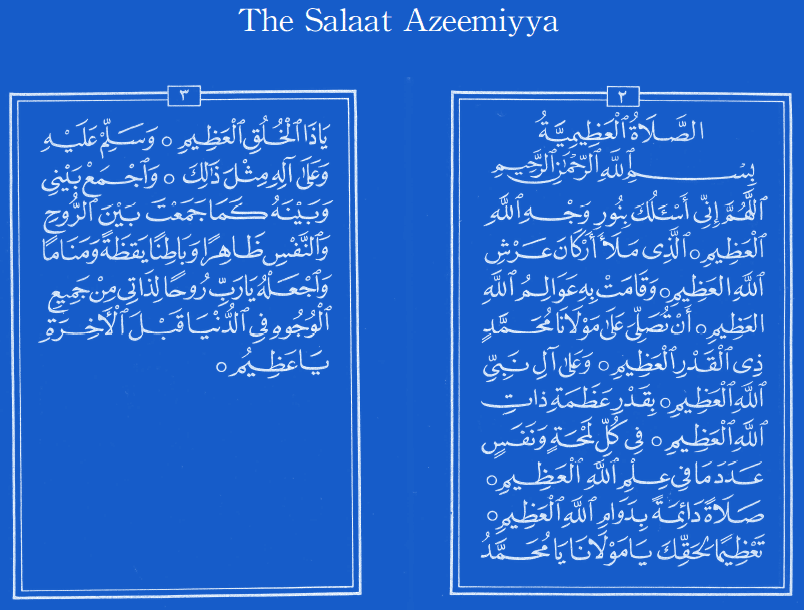 The Salaat Azeemiyya
٢
الصَّلَاةُ الْعَظِيمِيَّةُ
بِسْمِ اللَّهِ الرَّحْمَٰنِ الرَّحِيمِ
اللَّهُمَّ إِنِّي أَسْئَلُكَ بِنُورِ وَجْهِ اللَّهِ
الْعَظِيمِ ○ الَّذِي مَلَأَ أَرْكَانَ عَرْشِ
اللَّهِ الْعَظِيمِ ○ وَقَامَتْ بِهِ عَوَالِمُ اللَّهِ
الْعَظِيمِ ○ أَنْ تُصَلِّيَ عَلَى مَوْلَانَا مُحَمَّدٍ
ذِي الْقَدْرِ الْعَظِيمِ ○ وَعَلَى آلِ نَبِيِّ
اللَّهِ الْعَظِيمِ ○ بِقَدْرِ عَظَمَةِ ذَاتِ
اللَّهِ الْعَظِيمِ ○ فِي كُلِّ لَمْحَةٍ وَنَفَسٍ
عَدَدَ مَا فِي عِلْمِ اللَّهِ الْعَظِيمِ ○
صَلَاةً دَائِمَةً بِدَوَامِ اللَّهِ الْعَظِيمِ ○
تَعْظِيمًا لِحَقِّكَ يَا مَوْلَانَا يَا مُحَمَّدُ
٣
يَا ذَا الْخُلُقِ الْعَظِيمِ ○ وَسَلِّمْ عَلَيْهِ
وَعَلَى آلِهِ مِثْلَ ذَالِكَ ○ وَاجْمَعْ بَيْنِي
وَبَيْنَهُ كَمَا جَمَعْتَ بَيْنَ الرُّوحِ
وَالنَّفْسِ ظَاهِرًا وَبَاطِنًا يَقَظَةً وَمَنَامًا
وَاجْعَلْهُ يَارَبِّ رُوحًا لِذَاتِي مِنْ جَمِيعِ
الْوُجُوهِ فِي الدُّنْيَا قَبْلَ الْآخِرَةِ
يَا عَظِيمُ ○